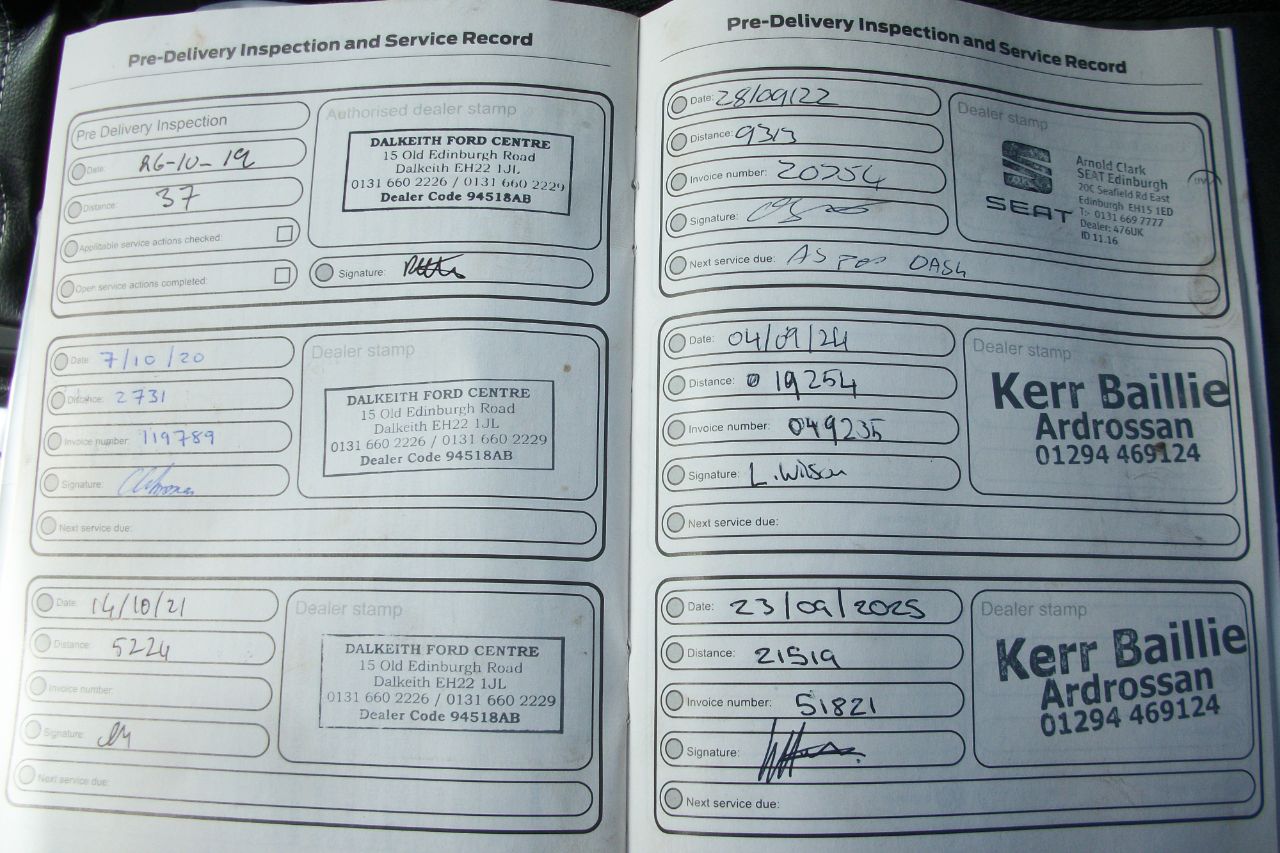 Pre-Delivery Inspection and Service Record
Pre Delivery Inspection
Date: 26-10-19
Distance: 37
Applicable service actions checked:
Open service actions completed:
Authorised dealer stamp
DALKEITH FORD CENTRE
15 Old Edinburgh Road
Dalkeith EH22 1JL
0131 660 2226 / 0131 660 2229
Dealer Code 94518AB
Signature:
Date: 7/10/20
Distance: 2731
Invoice number: 119789
Signature:
Next service due:
Dealer stamp
DALKEITH FORD CENTRE
15 Old Edinburgh Road
Dalkeith EH22 1JL
0131 660 2226 / 0131 660 2229
Dealer Code 94518AB
Date: 14/10/21
Distance: 5224
Invoice number:
Signature:
Next service due:
Dealer stamp
DALKEITH FORD CENTRE
15 Old Edinburgh Road
Dalkeith EH22 1JL
0131 660 2226 / 0131 660 2229
Dealer Code 94518AB
Pre-Delivery Inspection and Service Record
Date: 28/09/22
Distance: 9313
Invoice number: 20754
Signature:
Next service due: AS PER DASH
Dealer stamp
SEAT
Arnold Clark
SEAT Edinburgh
20C Seafield Rd East
Edinburgh EH15 1ED
T:- 0131 669 7777
Dealer: 476UK
ID 11.16
Date: 04/09/24
Distance: 019254
Invoice number: 049235
Signature: L. Wilson
Next service due:
Dealer stamp
Kerr Baillie
Ardrossan
01294 469124
Date: 23/09/2025
Distance: 21519
Invoice number: 51821
Signature:
Next service due:
Dealer stamp
Kerr Baillie
Ardrossan
01294 469124